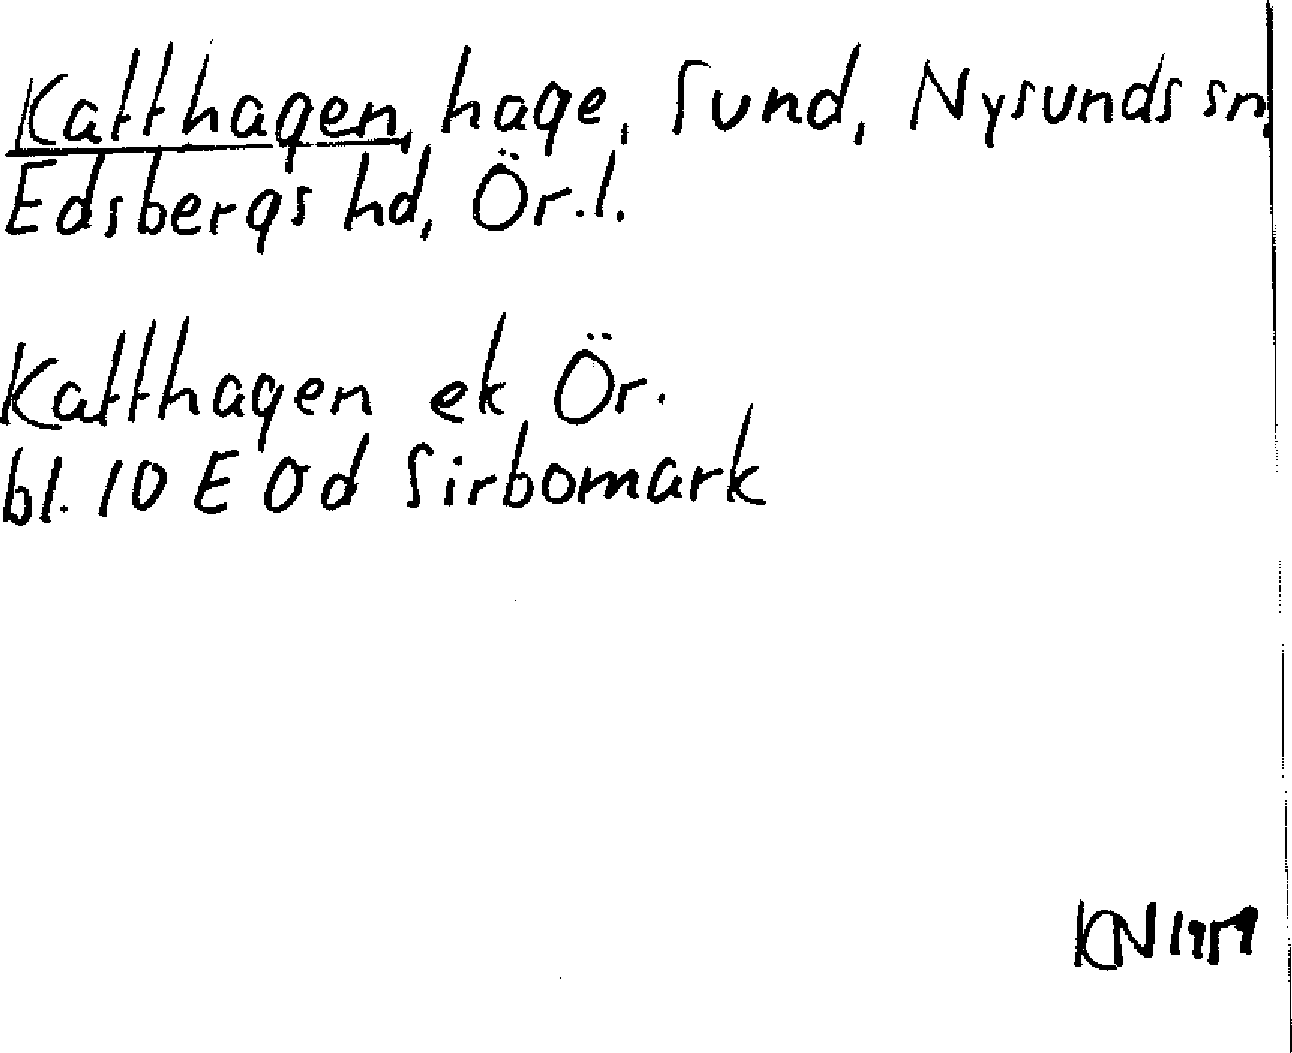 Katthagen, hage, Sund, Nysunds sn,
Edsbergs hd, Ör.l.
Katthagen ek Ör.
bl. 10 E 0d Sirbomark
KN 1959